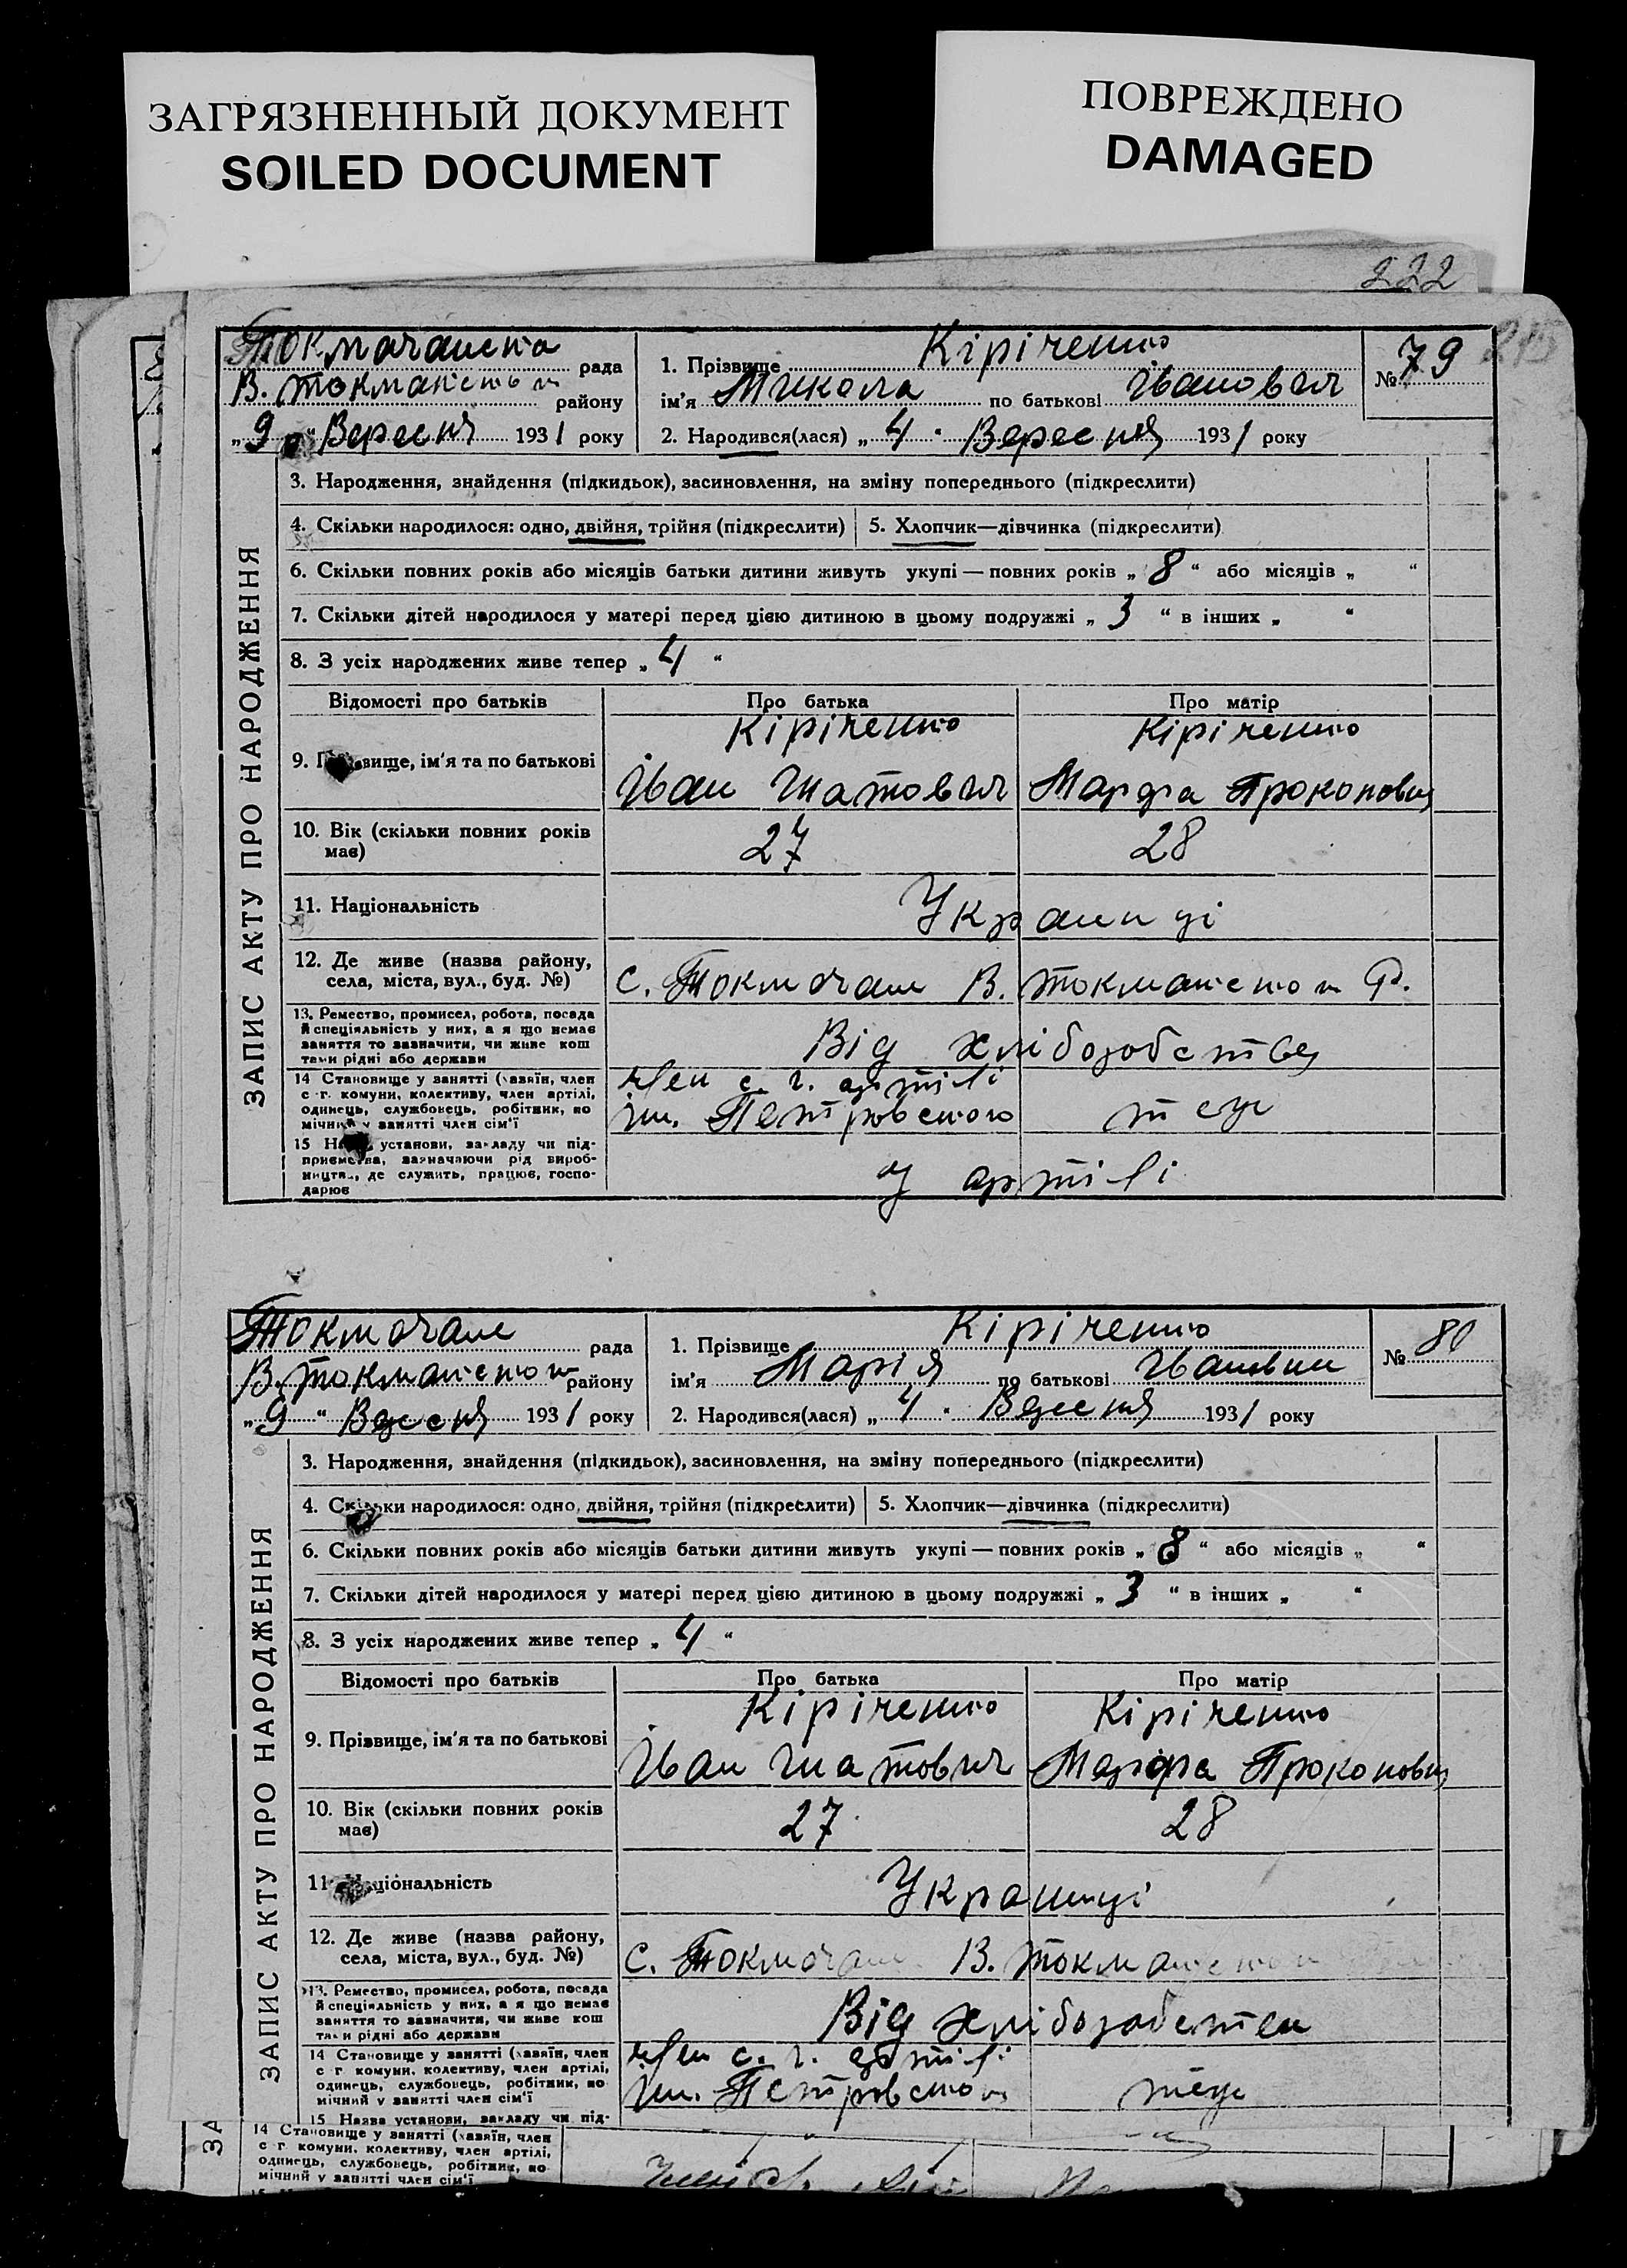 ЗАГРЯЗНЕННЫЙ ДОКУМЕНТ
SOILED DOCUMENT
ПОВРЕЖДЕНО
DAMAGED
222
215
рада
В. району
„9“ Вересня 1931 року
1. Прізвище Кіріченко
ім'я Микола по батькові Іванович
2. Народився(лася) „4“ Вересня 1931 року
№ 79
ЗАПИС АКТУ ПРО НАРОДЖЕННЯ
3. Народження, знайдення (підкидьок), засиновлення, на зміну попереднього (підкреслити)
4. Скільки народилося: одно, двійня, трійня (підкреслити)
5. Хлопчик—дівчинка (підкреслити)
6. Скільки повних років або місяців батьки дитини живуть укупі — повних років „ 8 “ або місяців „ “
7. Скільки дітей народилося у матері перед цією дитиною в цьому подружжі „ 3 “ в інших „ “
8. З усіх народжених живе тепер „ 4 “
Відомості про батьків
Про батька
Про матір
9. вище, ім'я та по батькові
Кіріченко
Іван
Кіріченко
Марфа Прокоповна
10. Вік (скільки повних років
має)
27
28
11. Національність
Українці
12. Де живе (назва району,
села, міста, вул., буд. №)
с. Токмачан В. Р.
13. Ремество, промисел, робота, посада
й спеціяльність у них, а я що немає
заняття то зазначити, чи живе кош
тами рідні або держави
Від хліборобства
14 Становище у занятті (хазяїн, член
с г. комуни, колективу, член артілі,
одинець, службовець, робітник, по
мічний у занятті член сім'ї
член с. г. артілі
ім. Петровського
теж
15 установи, закладу чи під-
приємства, зазначаючи рід вироб-
ництва, де служить, працює, госпо-
дарює
у артілі
Токмачан рада
В. району
„9“ Вересня 1931 року
1. Прізвище Кіріченко
ім'я Марія по батькові
2. Народився(лася) „4“ Вересня 1931 року
№ 80
ЗАПИС АКТУ ПРО НАРОДЖЕННЯ
3. Народження, знайдення (підкидьок), засиновлення, на зміну попереднього (підкреслити)
4. Скільки народилося: одно, двійня, трійня (підкреслити)
5. Хлопчик—дівчинка (підкреслити)
6. Скільки повних років або місяців батьки дитини живуть укупі — повних років „ 8 “ або місяців „ “
7. Скільки дітей народилося у матері перед цією дитиною в цьому подружжі „ 3 “ в інших „ “
8. З усіх народжених живе тепер „ 4 “
Відомості про батьків
Про батька
Про матір
9. Прізвище, ім'я та по батькові
Кіріченко
Іван
Кіріченко
Марфа Прокоповна
10. Вік (скільки повних років
має)
27
28
11 Національність
Українці
12. Де живе (назва району,
села, міста, вул., буд. №)
с. Токмачан В.
13. Ремество, промисел, робота, посада
й спеціяльність у них, а я що немає
заняття то зазначити, чи живе кош
тами рідні або держави
Від хліборобства
14 Становище у занятті (хазяїн, член
с г комуни, колективу, член артілі,
одинець, службовець, робітник, по
мічний у занятті член сім'ї
член с. г. артілі
ім. Петровського
теж
15 Назва установи, закладу чи під-
ЗА
14 Становище у занятті (хазяїн, член
с г комуни, колективу, член артілі,
одинець, службовець, робітник, по
мічний у занятті член сім'ї